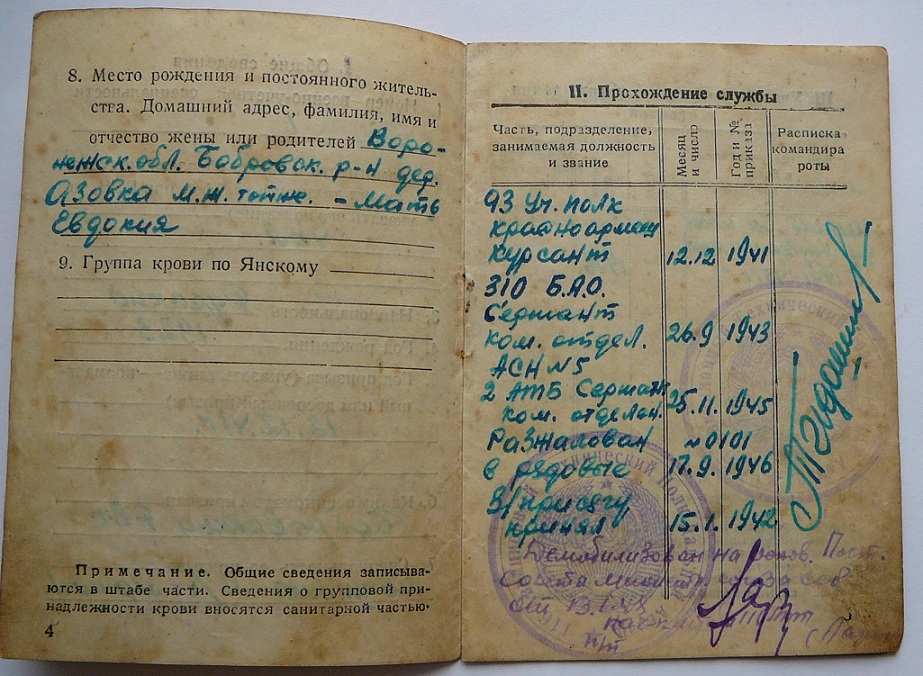 8. Место рождения и постоянного житель-
ства. Домашний адрес, фамилия, имя и
отчество жены или родителей Воро-
нежск. обл. Бобровск. р-н дер.
Азовка м.ж. тоже. - Мать
Евдокия
9. Группа крови по Янскому
Примечание. Общие сведения записыва-
ются в штабе части. Сведения о групповой при-
надлежности крови вносятся санитарной частью.
4
II. Прохождение службы
Часть, подразделение, занимаемая должность и звание
Месяц и число
Год и № приказа
Расписка командира роты
93 Уч. полк
Красноармеец
Курсант 12.12 1941
310 Б.А.О.
Сержант
ком. отдел. 26.9 1943
АСН №5
2 АТБ Сержант
ком. отделен. 25.11. 1945
Разжалован №0101
в рядовые 17.9. 1946
В/присягу
принял 15.1. 1942
Демобилизован на основ. Пост.
Совета Министр. Союза ССР
от